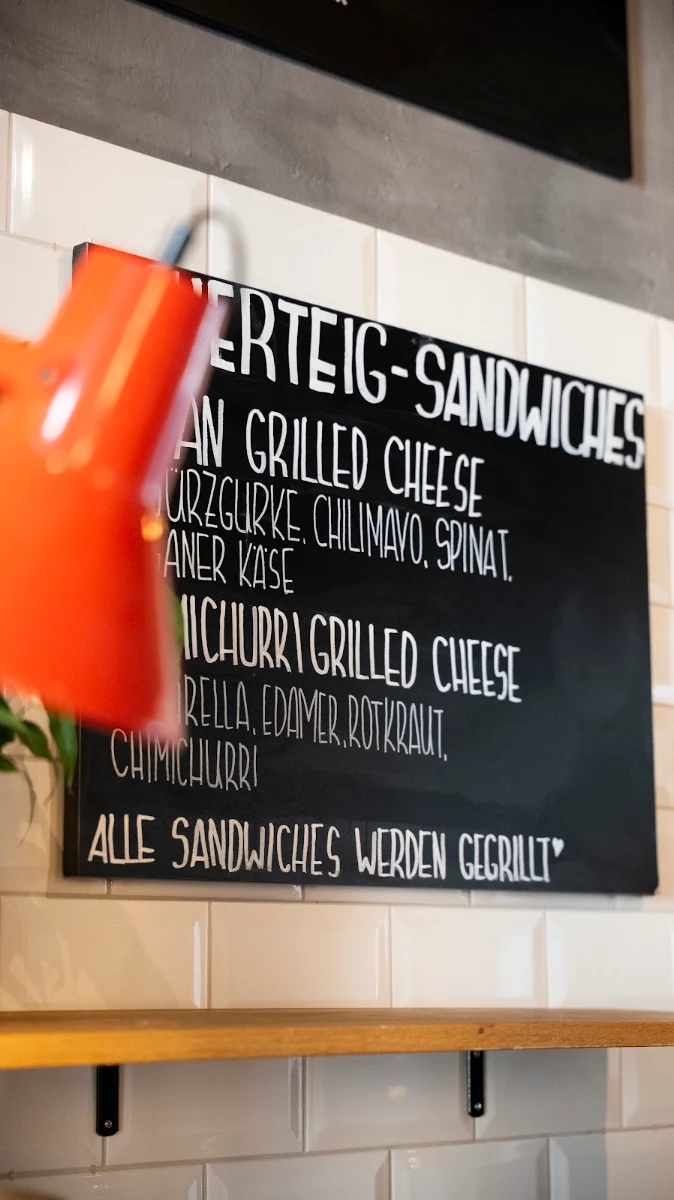 ERTEIG-SANDWICHES
AN GRILLED CHEESE
ÜRZGURKE. CHILIMAYO. SPINAT.
ANER KÄSE
MICHURRI GRILLED CHEESE
RELLA. EDAMER. ROTKRAUT.
CHIMICHURRI
ALLE SANDWICHES WERDEN GEGRILLT♥